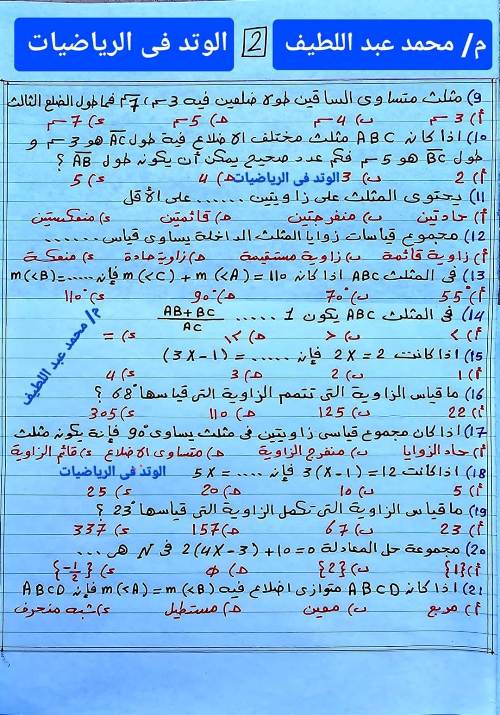 م/ محمد عبد اللطيف 2 الوتد فى الرياضيات
9) مثلث متساوى الساقين طولا ضلعين فيه 3سم، 7سم فما طول الضلع الثالث
أ) 3سم ب) 4سم حـ) 5سم ء) 7سم
10) اذا كان ABC مثلث مختلف الاضلاع فيه طول AC هو 3سم و
طول BC هو 5سم فكم عدد صحيح يمكن أن يكون طول AB ؟
أ) 2 ب) 3 حـ) 4 ء) 5
الوتد فى الرياضيات
11) يحتوى المثلث على زاويتين ...... على الأقل
أ) حادتين ب) منفرجتين حـ) قائمتين ء) منعكستين
12) مجموع قياسات زوايا المثلث الداخلة يساوى قياس ......
أ) زاوية قائمة ب) زاوية مستقيمة حـ) زاوية حادة ء) منعكسة
13) فى المثلث ABC اذا كان m(<A) + m(<C) = 110 فإن m(<B)=.....
أ) 55° ب) 70° حـ) 90° ء) 110°
14) فى المثلث ABC يكون 1 ..... AB+BC / AC
أ) > ب) < حـ) ≥ ء) =
م/ محمد عبد اللطيف
15) اذا كانت 2X = 2 فإن ...... = (3X-1)
أ) 1 ب) 2 حـ) 3 ء) 4
16) ما قياس الزاوية التى تتمم الزاوية التى قياسها 68° ؟
أ) 22 ب) 125 حـ) 110 ء) 305
17) اذا كان مجموع قياسى زاويتين فى مثلث يساوى 90° فإنة يكون مثلث
أ) حاد الزوايا ب) منفرج الزاوية حـ) متساوى الاضلاع ء) قائم الزاوية
18) اذا كانت 3(X-1) = 12 فإن 5X = .....
الوتد فى الرياضيات
أ) 5 ب) 10 حـ) 20 ء) 25
19) ما قياس الزاوية التى تكمل الزاوية التى قياسها 23° ؟
أ) 23 ب) 67 حـ) 157 ء) 337
20) مجموعة حل المعادلة 2(4X-3)+10=0 فى N هى ...
أ) {1} ب) {2} حـ) Φ ء) {-1/2}
21) اذا كان ABCD متوازى اضلاع فيه m(<A) = m(<B) فإن ABCD
أ) مربع ب) معين حـ) مستطيل ء) شبه منحرف